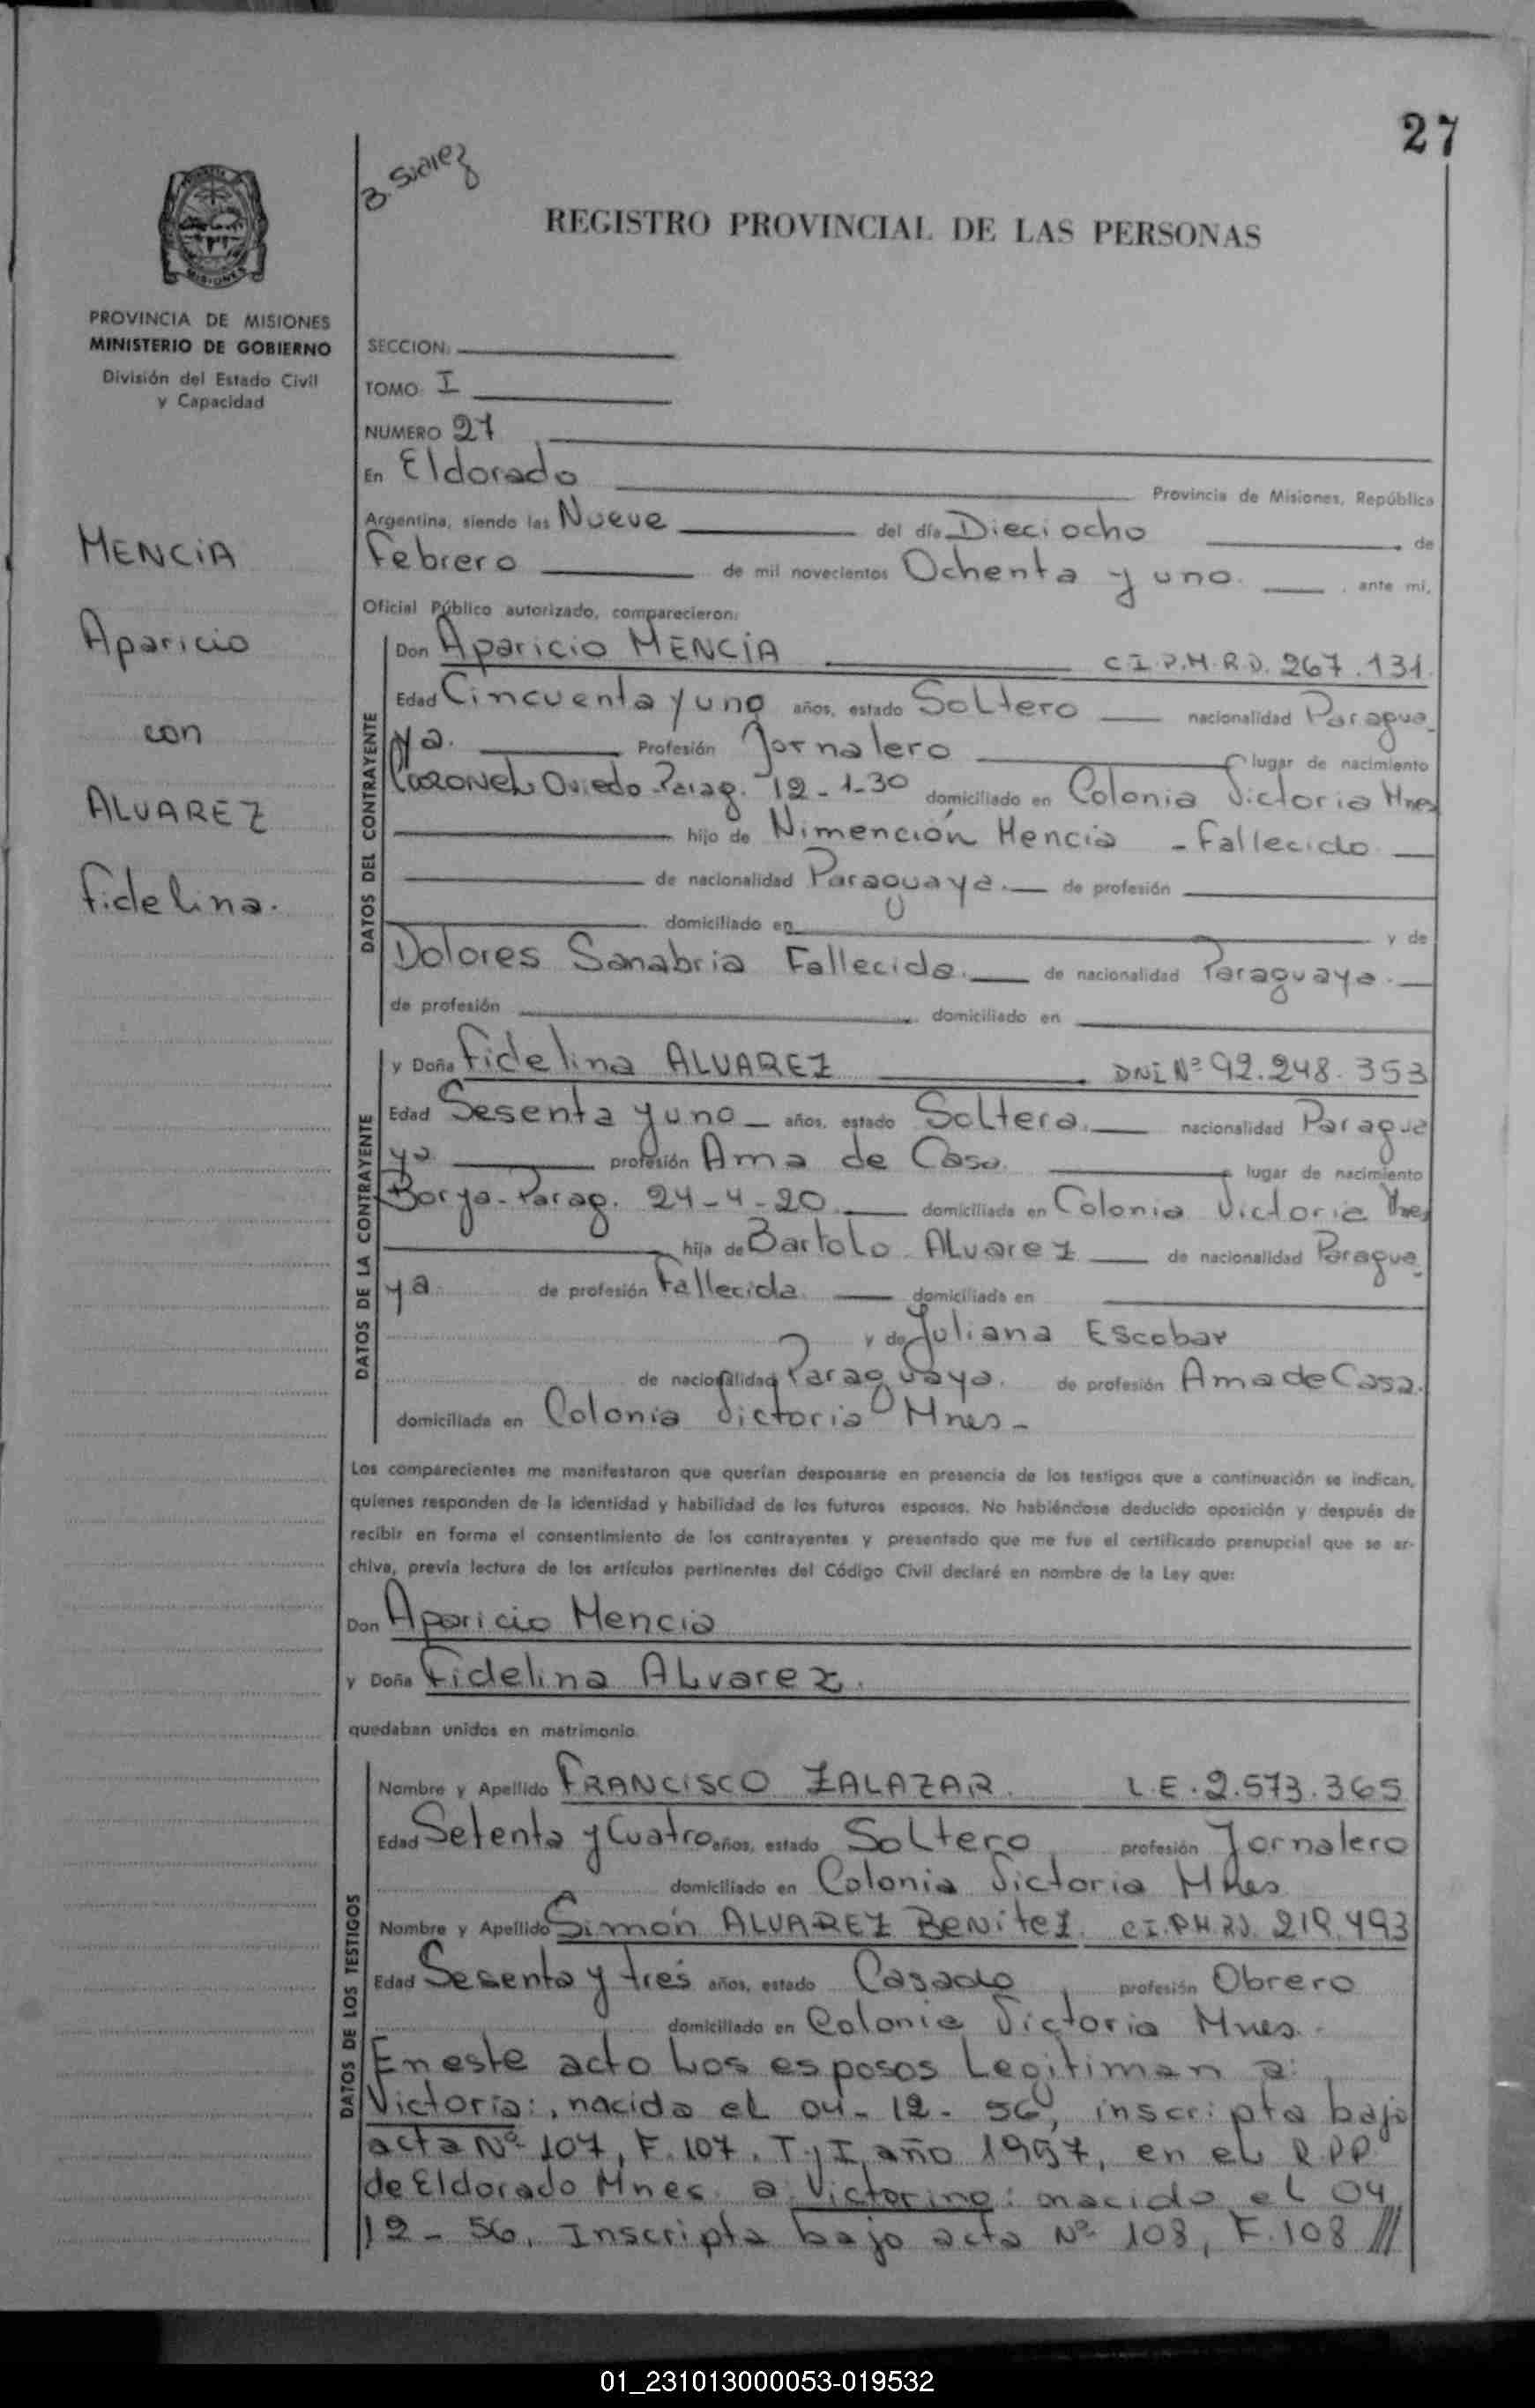 27
B. Suarez
REGISTRO PROVINCIAL DE LAS PERSONAS
MISIONES
PROVINCIA DE MISIONES
MINISTERIO DE GOBIERNO
División del Estado Civil
y Capacidad
MENCIA
Aparicio
con
ALVAREZ
Fidelina.
SECCION
TOMO I
NUMERO 27
En Eldorado Provincia de Misiones, República
Argentina, siendo las Nueve del día Dieciocho de
Febrero de mil novecientos Ochenta y uno. , ante mi,
Oficial Público autorizado, comparecieron:
DATOS DEL CONTRAYENTE
Don Aparicio MENCIA C.I.P.M.R.D. 267.131.
Edad Cincuenta y uno años, estado Soltero nacionalidad Paragua-
ya. Profesión Jornalero lugar de nacimiento
CORONEL Oviedo-Parag. 12-1-30 domiciliado en Colonia Victoria Mnes
hijo de Nimención Mencia - Fallecido
de nacionalidad Paraguaya. de profesión
domiciliado en y de
Dolores Sanabria Fallecida. de nacionalidad Paraguaya.
de profesión domiciliado en
DATOS DE LA CONTRAYENTE
y Doña Fidelina ALVAREZ DNI Nº 92.248.353
Edad Sesenta y uno años, estado Soltera. nacionalidad Paragua
ya profesión Ama de Casa. lugar de nacimiento
Borja-Parag. 24-4-20 domiciliada en Colonia Victoria Mnes
hija de Bartolo Alvarez de nacionalidad Paragua-
ya. de profesión Fallecida domiciliada en
y de Juliana Escobar
de nacionalidad Paraguaya. de profesión Ama de Casa.
domiciliada en Colonia Victoria Mnes-
Los comparecientes me manifestaron que querían desposarse en presencia de los testigos que a continuación se indican,
quienes responden de la identidad y habilidad de los futuros esposos. No habiéndose deducido oposición y después de
recibir en forma el consentimiento de los contrayentes y presentado que me fue el certificado prenupcial que se ar-
chiva, previa lectura de los artículos pertinentes del Código Civil declaré en nombre de la Ley que:
Don Aparicio Mencia
y Doña Fidelina Alvarez.
quedaban unidos en matrimonio.
DATOS DE LOS TESTIGOS
Nombre y Apellido FRANCISCO ZALAZAR. L.E. 2.573.365
Edad Setenta y Cuatro años, estado Soltero profesión Jornalero
domiciliado en Colonia Victoria Mnes
Nombre y Apellido Simón ALVAREZ Benitez. C.I.P.M.RD. 219.493
Edad Sesenta y tres años, estado Casado profesión Obrero
domiciliado en Colonia Victoria Mnes.
En este acto Los esposos Legitiman a:
Victoria:, nacida el 04-12-56, inscripta bajo
acta Nº 107, F. 107. T. I, año 1957, en el R.P.P
de Eldorado Mnes. a Victorino: nacido el 04
12-56, Inscripta bajo acta Nº 108, F. 108 ///
01_231013000053-019532